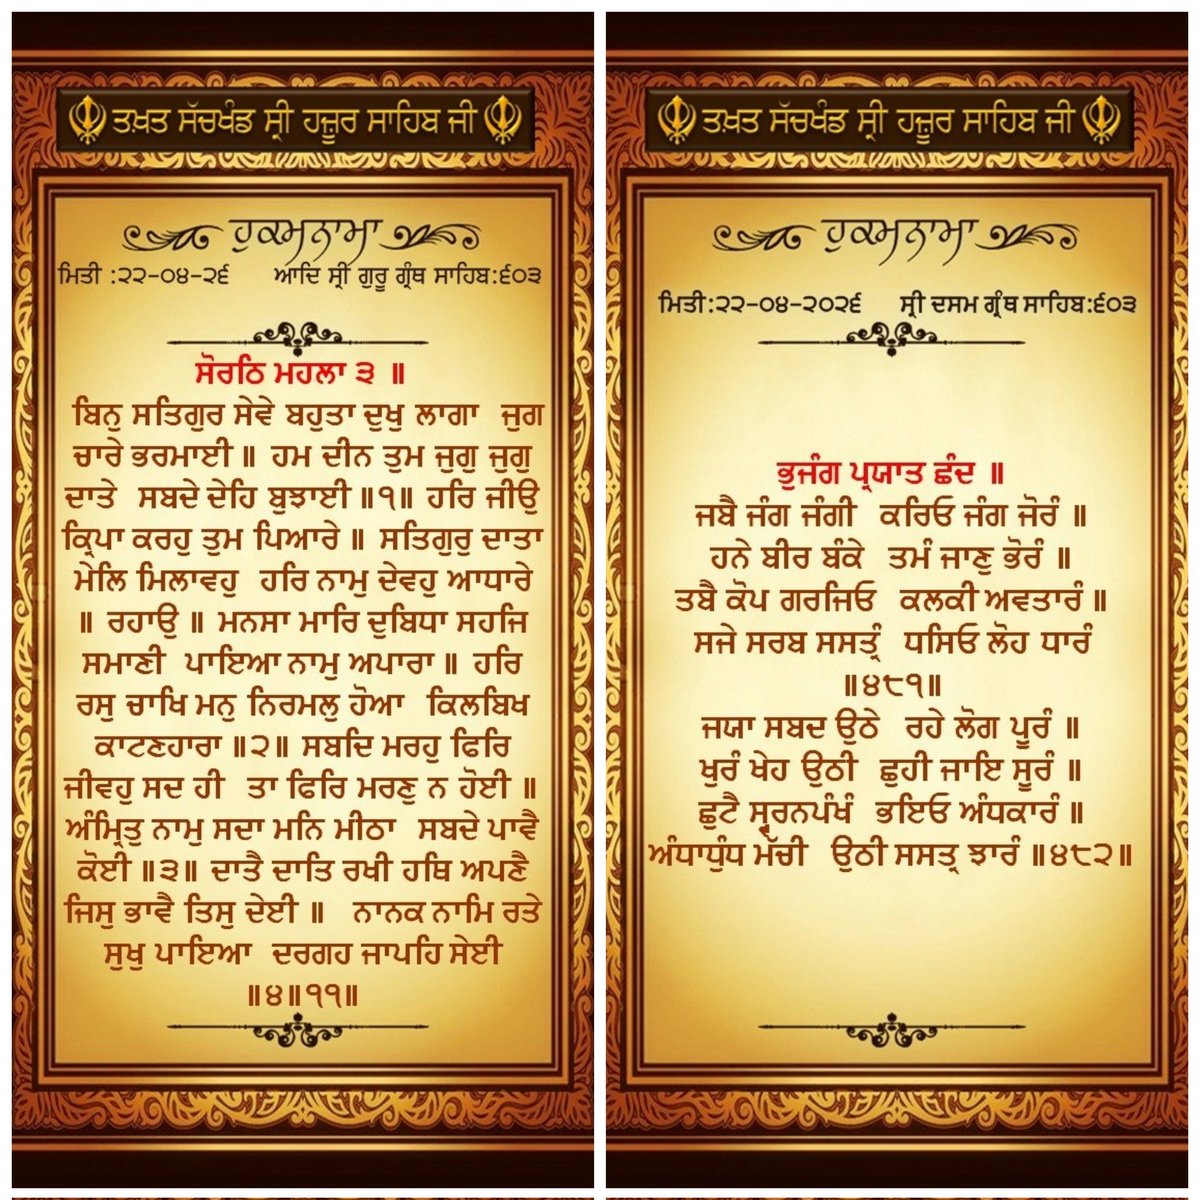 ਤਖ਼ਤ ਸੱਚਖੰਡ ਸ੍ਰੀ ਹਜ਼ੂਰ ਸਾਹਿਬ ਜੀ
ਹੁਕਮਨਾਮਾ
ਮਿਤੀ :੨੨-੦੪-੨੬ ਆਦਿ ਸ੍ਰੀ ਗੁਰੂ ਗ੍ਰੰਥ ਸਾਹਿਬ:੬੦੩
ਸੋਰਠਿ ਮਹਲਾ ੩ ॥
ਬਿਨੁ ਸਤਿਗੁਰ ਸੇਵੇ ਬਹੁਤਾ ਦੁਖੁ ਲਾਗਾ ਜੁਗ
ਚਾਰੇ ਭਰਮਾਈ ॥ ਹਮ ਦੀਨ ਤੁਮ ਜੁਗੁ ਜੁਗੁ
ਦਾਤੇ ਸਬਦੇ ਦੇਹਿ ਬੁਝਾਈ ॥੧॥ ਹਰਿ ਜੀਉ
ਕ੍ਰਿਪਾ ਕਰਹੁ ਤੁਮ ਪਿਆਰੇ ॥ ਸਤਿਗੁਰੁ ਦਾਤਾ
ਮੇਲਿ ਮਿਲਾਵਹੁ ਹਰਿ ਨਾਮੁ ਦੇਵਹੁ ਆਧਾਰੇ
॥ ਰਹਾਉ ॥ ਮਨਸਾ ਮਾਰਿ ਦੁਬਿਧਾ ਸਹਜਿ
ਸਮਾਣੀ ਪਾਇਆ ਨਾਮੁ ਅਪਾਰਾ ॥ ਹਰਿ
ਰਸੁ ਚਾਖਿ ਮਨੁ ਨਿਰਮਲੁ ਹੋਆ ਕਿਲਬਿਖ
ਕਾਟਣਹਾਰਾ ॥੨॥ ਸਬਦਿ ਮਰਹੁ ਫਿਰਿ
ਜੀਵਹੁ ਸਦ ਹੀ ਤਾ ਫਿਰਿ ਮਰਣੁ ਨ ਹੋਈ ॥
ਅੰਮ੍ਰਿਤੁ ਨਾਮੁ ਸਦਾ ਮਨਿ ਮੀਠਾ ਸਬਦੇ ਪਾਵੈ
ਕੋਈ ॥੩॥ ਦਾਤੈ ਦਾਤਿ ਰਖੀ ਹਥਿ ਅਪਣੈ
ਜਿਸੁ ਭਾਵੈ ਤਿਸੁ ਦੇਈ ॥ ਨਾਨਕ ਨਾਮਿ ਰਤੇ
ਸੁਖੁ ਪਾਇਆ ਦਰਗਹ ਜਾਪਹਿ ਸੇਈ
॥੪॥੧੧॥
ਤਖ਼ਤ ਸੱਚਖੰਡ ਸ੍ਰੀ ਹਜ਼ੂਰ ਸਾਹਿਬ ਜੀ
ਹੁਕਮਨਾਮਾ
ਮਿਤੀ:੨੨-੦੪-੨੦੨੬ ਸ੍ਰੀ ਦਸਮ ਗ੍ਰੰਥ ਸਾਹਿਬ:੬੦੩
ਭੁਜੰਗ ਪ੍ਰਯਾਤ ਛੰਦ ॥
ਜਬੈ ਜੰਗ ਜੰਗੀ ਕਰਿਓ ਜੰਗ ਜੋਰੰ ॥
ਹਨੇ ਬੀਰ ਬੰਕੇ ਤਮੰ ਜਾਣੁ ਭੋਰੰ ॥
ਤਬੈ ਕੋਪ ਗਰਜਿਓ ਕਲਕੀ ਅਵਤਾਰੰ ॥
ਸਜੇ ਸਰਬ ਸਸਤ੍ਰੰ ਧਸਿਓ ਲੋਹ ਧਾਰੰ
॥੪੮੧॥
ਜਯਾ ਸਬਦ ਉਠੇ ਰਹੇ ਲੋਗ ਪੂਰੰ ॥
ਖੁਰੰ ਖੇਹ ਉਠੀ ਛੁਹੀ ਜਾਇ ਸੂਰੰ ॥
ਛੁਟੈ ਸ੍ਵਰਨਪੰਖੰ ਭਇਓ ਅੰਧਕਾਰੰ ॥
ਅੰਧਾਧੁੰਧ ਮੱਚੀ ਉਠੀ ਸਸਤ੍ਰ ਝਾਰੰ ॥੪੮੨॥